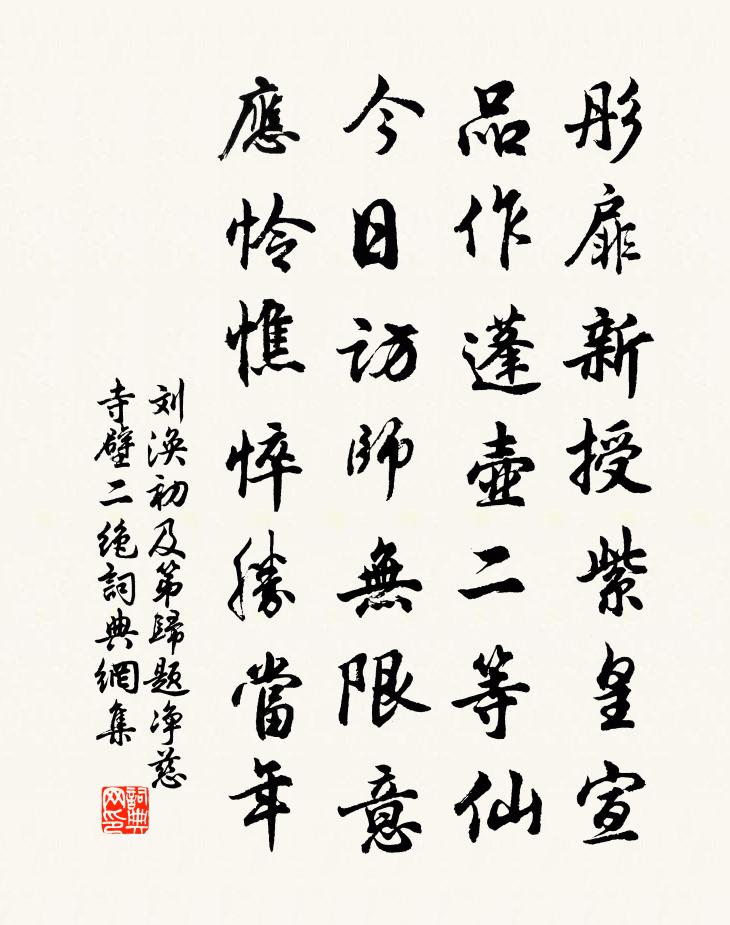 彤扉新授紫皇宣
品作蓬壺二等仙
今日訪師無限意
應怜憔悴勝當年
刘渙初及第歸題净慈
寺壁二绝詞典網集
詞典
网印